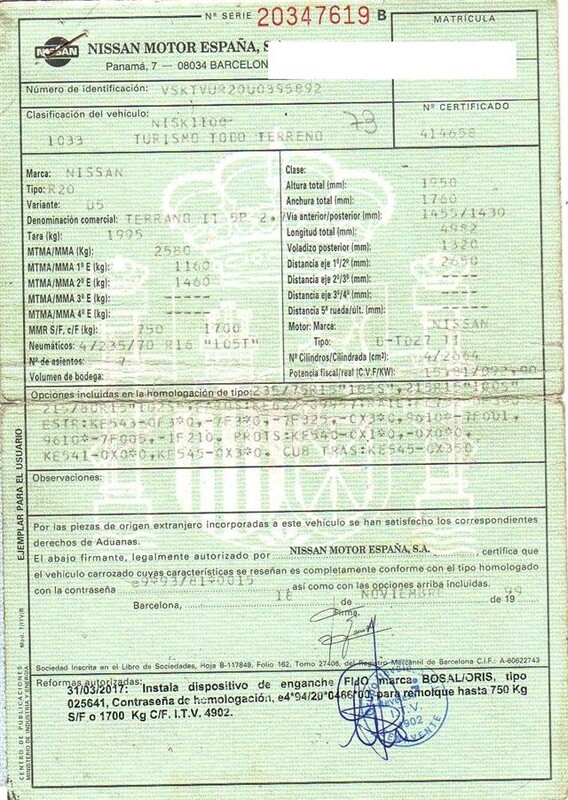 Nº SERIE 20347619 B
MATRÍCULA
NISSAN
NISSAN MOTOR ESPAÑA, S
Panamá, 7 — 08034 BARCELON
Número de identificación: VSKTVUR20U0395892
Clasificación del vehículo: NISK1100 73
1033 TURISMO TODO TERRENO
Nº CERTIFICADO
414658
Marca: NISSAN
Tipo: R20
Variante: U5
Denominación comercial: TERRANO II 5P 2.7
Tara (kg): 1995
MTMA/MMA (Kg): 2580
MTMA/MMA 1º E (kg): 1160
MTMA/MMA 2º E (kg): 1460
MTMA/MMA 3º E (kg): -----
MTMA/MMA 4º E (kg): -----
MMR S/F, c/F (kg): 750 1700
Neumáticos: 4/235/70 R16 "105T"
Nº de asientos: 7
Volumen de bodega:
Clase:
Altura total (mm): 1950
Anchura total (mm): 1760
Vía anterior/posterior (mm): 1455/1430
Longitud total (mm):
Voladizo posterior (mm): 1320
Distancia eje 1º/2º (mm): 2650
Distancia eje 2º/3º (mm): ----
Distancia eje 3º/4º (mm): ----
Distancia 5ª rueda/últ. (mm): ----
Motor: Marca: NISSAN
Tipo: D-TD27 TI
Nº Cilindros/Cilindrada (cm³): 4/2664
Potencia fiscal/real (C.V.F/KW):
Opciones incluidas en la homologación de tipo: 235/75R15"105S",215R15"100S"
215/80R15"102S",
ESTR:KE543-0F3*0,-7F3*0,-7F325,-CX3*0,9610*-7F001,
9610*-7F005,-1F210. PROTS:KE540-CX1*0,-0X0*0,
KE541-0X0*0,KE545-0X3*0. CUB TRAS:KE545-0X350
Observaciones:
Por las piezas de origen extranjero incorporadas a este vehículo se han satisfecho los correspondientes
derechos de Aduanas.
El abajo firmante, legalmente autorizado por NISSAN MOTOR ESPAÑA, S.A. , certifica que
el vehículo carrozado cuyas características se reseñan es completamente conforme con el tipo homologado
con la contraseña e9*93/81*0015 así como con las opciones arriba incluidas.
Barcelona, 18 de NOVIEMBRE de 19 99
Firma,
Sociedad Inscrita en el Libro de Sociedades, Hoja B-117849, Folio 162, Tomo 27406, del Registro Mercantil de Barcelona C.I.F.: A-60622743
Reformas autorizadas:
31/03/2017: Instala dispositivo de enganche FIJO marca BOSAL/ORIS, tipo
025641, Contraseña de homologación, e4*94/20*0466*00, para remolque hasta 750 Kg
S/F o 1700 Kg C/F. I.T.V. 4902.
I.T.V.
4902
BENAVENTE
EJEMPLAR PARA EL USUARIO
Mod. TITV/B
CENTRO DE PUBLICACIONES
MINISTERIO DE INDUSTRIA Y ENERGIA